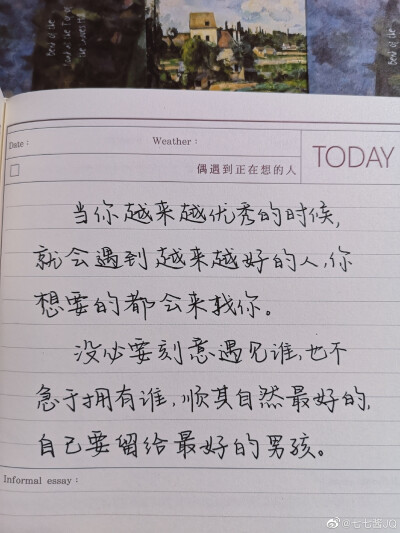 Date：
Weather：
偶遇到正在想的人
TODAY
当你越来越优秀的时候,
就会遇到越来越好的人,你
想要的都会来找你。
没必要刻意遇见谁,也不
急于拥有谁,顺其自然最好的,
自己要留给最好的男孩。
Informal essay：
@七七酱JQ